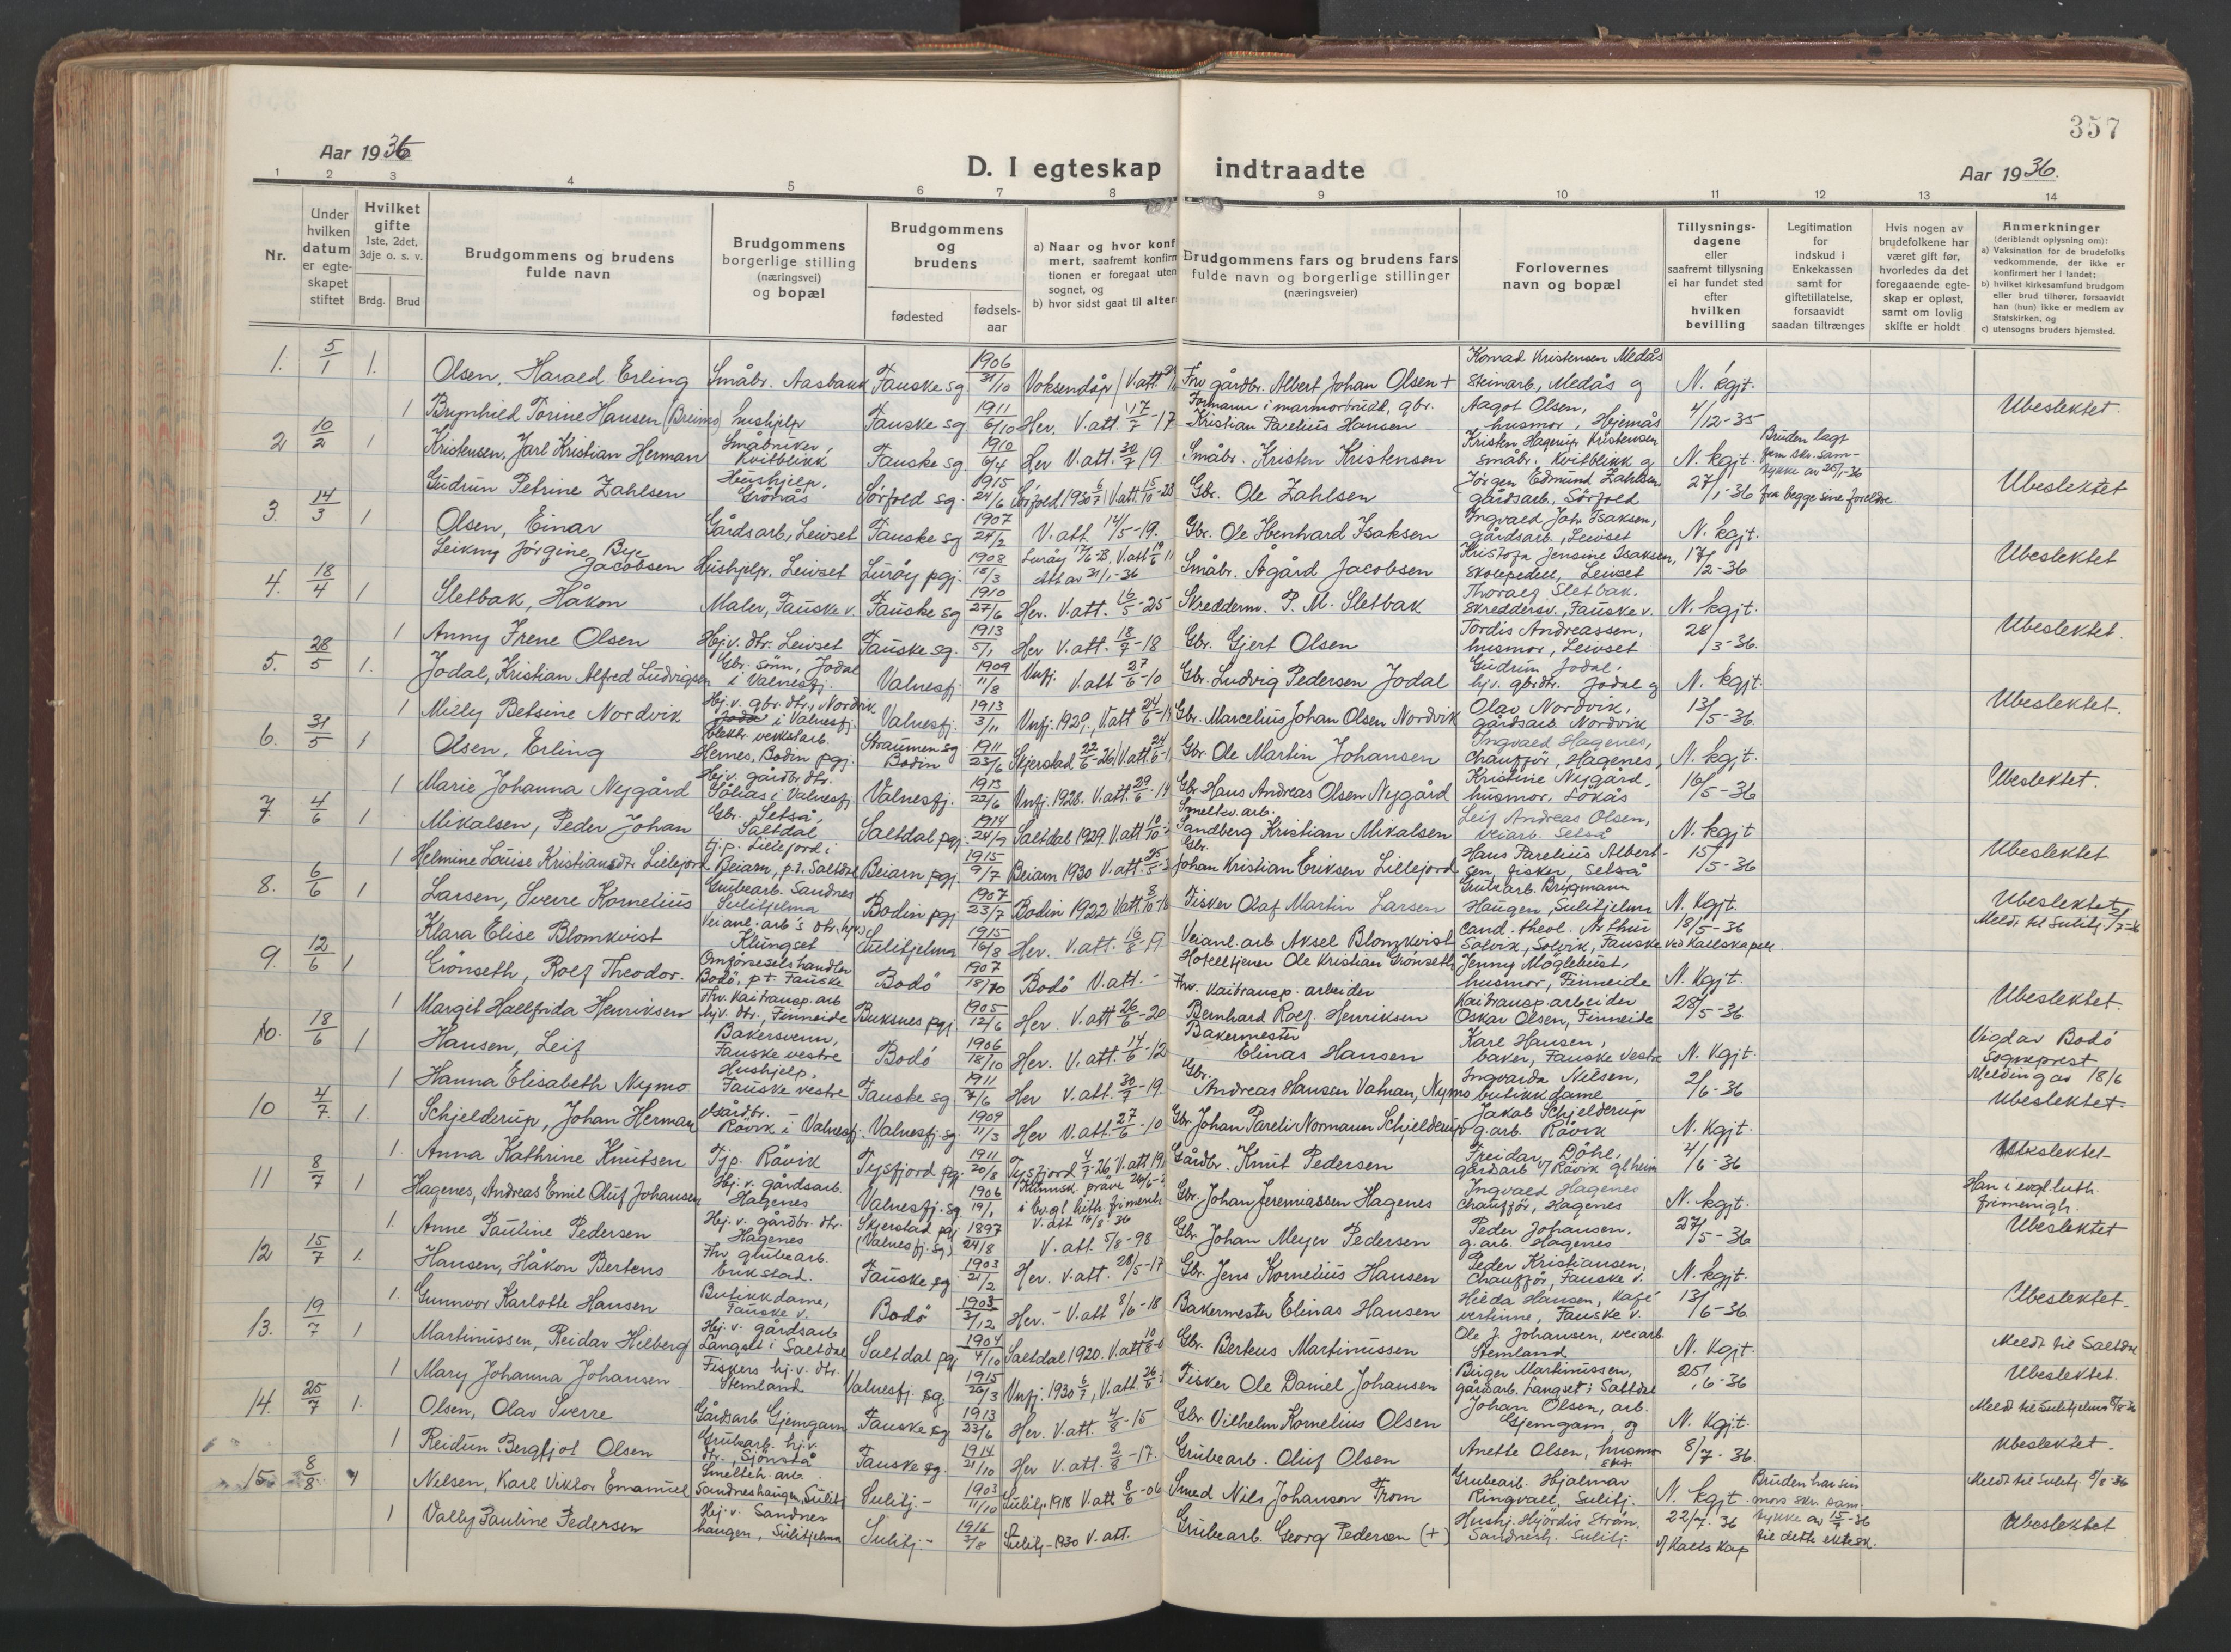 357
Aar 1936
D. I egteskap indtraadte
Aar 1936.
1 2 3 4 5 6 7 8 9 10 11 12 13 14
Nr.
Under hvilken datum er egteskapet stiftet
Hvilket gifte 1ste, 2det, 3dje o. s. v.
Brdg. Brud
Brudgommens og brudens fulde navn
Brudgommens borgerlige stilling (næringsvei) og bopæl
Brudgommens og brudens
fødested
fødsels-aar
a) Naar og hvor konf
mert, saafremt konfirm
tionen er foregaat uten
sognet, og
b) hvor sidst gaat til alter
Brudgommens fars og brudens fars
fulde navn og borgerlige stillinger
(næringsveier)
Forlovernes
navn og bopæl
Tillysnings-
dagene
eller
saafremt tillysning
ei har fundet sted
efter
hvilken
bevilling
Legitimation
for
indskud i
Enkekassen
samt for
giftetillatelse,
forsaavidt
saadan tiltrænges
Hvis nogen av
brudefolkene har
været gift før,
hvorledes da det
foregaaende egte-
skap er opløst,
samt om lovlig
skifte er holdt
Anmerkninger
(deriblandt oplysning om):
a) Vaksination for de brudefolks
vedkommende, der ikke er
konfirmert her i landet;
b) hvilket kirkesamfund brudgom
eller brud tilhører, forsaavidt
han (hun) ikke er medlem av
Statskirken, og
c) utensogns bruders hjemsted.
1. 5/1 1. Olsen, Harald Erling Småbr. Aasbakk Fauske sg 1906 31/10 Voksendåp V.att. Fhv gårdbr. Albert Johan Olsen + Konrad Kristensen Medås steinarb., Medås g N. kgjt.
1 Brynhild Torine Hansen (Breimo) hushjelp Fauske sg 1911 6/10 Her. V.att. 17/7-17 Formann i marmorbrudd, gbr. Kristian Parelius Hansen Aagot Olsen, husmor, Hjemås 4/12-35 Ubeslektet.
2 10/2 1 Kristensen, Jarl Kristian Herman Småbruker, Kvitblikk Fauske sg. 1910 6/4 Her V.att. 30/7 19 Småbr. Kristen Kristensen Kristen Hagerup Kristensen småbr. Kvitblikk g N. kgjt. Bruden lagt frem skr. sam-
Gudrun Petrine Zahlsen Hushjelp. Grönås Sörfold sg. 1915 24/6 Sörfold 1930 6/7 V.att. 15/10-28 Gbr. Ole Zahlsen Jörgen Edmund Zahlsen gårdsarb., Sörfold 27/1-36 tykke av 25/1-36 fra begge sine foreldre. Ubeslektet
3. 14/3 1 Olsen, Einar Gårdsarb., Leivset Fauske sg 1907 24/2 V.att. 14/5-19. Gbr. Ole Ebenhard Isaksen Ingvald Joh. Isaksen, gårdsarb., Leivset N. kgjt.
Leikny Jörgine Bye Jacobsen Hushjelp. Leivset Luröy pgj. 1908 18/3 Luröy 17/6-23, V.att 19/6 11 Att av 21/1-36 Småbr. Ågård Jacobsen Kristofa Jensine Isaksen, Skolepedell, Leivset 17/2-36 Ubeslektet
4. 18/4 1 Sletbak, Håkon Maler, Fauske v. Fauske sg 1910 27/6 Her. V.att. 16/5-25 Skredderm. P. M. Sletbak Thoralf Sletbak, Skreddersv., Fauske v. N. kgjt.
1 Anny Irene Olsen Hj.v. dtr. Leivset Fauske sg. 1913 5/1 Her V.att. 18/7-18 Gbr. Gjert Olsen Tordis Andreassen, husmor, Leivset 28/3-36. Ubeslektet.
5. 28/5 1. Jodal, Kristian Alfred Ludvigsen Gbr. sönn, Jodal i Valnesfj. Valnesfj. 1909 11/8 Vnfj. V.att 27/6-10 Gbr. Ludvig Pedersen Jodal Gudrun Jodal, hj.v. gbrdtr. Jodal g N. kgjt.
1 Milly Betsine Nordvik Hj.v. gbr. dtr., Nordvik i Valnesfj. Valnesfj. 1913 3/11 Vnfj. 1929., V.att 24/6-14 Gbr. Marcelius Johan Olsen Nordvik Olav Nordvik, gårdsarb. Nordvik 13/5-36. Ubeslektet.
6. 31/5 1 Olsen, Erling Elektr. verkstarb. Hernes, Bodin pgj. Straumen sg Bodin 1911 23/6 Skjerstad 22/6-26 V.att. 24/6-1 Gbr. Ole Martin Johansen Ingvald Hagenes, Chaufför, Hagenes, N. kgjt.
1 Marie Johanna Nygård Hj.v. gårdbr. dtr. Lökås i Valnesfj. Valnesfj. 1913 22/6 Vnfj. 1928. V.att. 29/6-14 Gbr. Hans Andreas Olsen Nygård Kristine Nygård, husmor, Lökås 16/5-36 Ubeslektet.
7. 4/6 1 Mikalsen, Peder Johan Gbr. Setså, Saltdal Saltdal pgj. 1914 24/9 Saltdal 1929. V.att 10/10- Smeltev. arb. Sandberg Kristian Mikalsen Leif Andreas Olsen, veiarb. Setså N. kgjt
1 Helmine Louise Kristiansdtr Lillefjord tj.p. Lillefjord i Beiarn, p.t. Saltdal Beiarn pgj. 1915 9/7 Beiarn 1930 V.att. 25/5-3 Gbr. Johan Kristian Eriksen Lillefjord Hans Parelius Albert-sen, fisker, Setså 15/5-36 Ubeslektet
8. 6/6 1 Larsen, Sverre Kornelius Grubearb. Sandnes Sulitjelma Bodin pgj 1907 23/7 Bodin 1922 V.att. 8/10-16 Fisker Olaf Martin Larsen Grubearb. Brigmann Haugen, Sulitjelma N. Kgjt. Ubeslektet
Klara Elise Blomkvist Veianl. arb's dtr. hjv. Klungset Sulitjelma 1915 16/8 Her. V.att. 16/8-19 Veianl. arb Aksel Blomkvist Cand. theol. Arthur Solvik, Solvik, Fauske 18/5-36 ved Kallskapell. Meldt til Sulitj
9. 12/6 1 Grönseth, Rolf Theodor. Omförselshandler Bodö, p.t. Fauske Bodö 1907 18/10 Bodö V.att. - Hotelltjener Ole Kristian Grönseth Jenny Möglebust, husmor, Finneide N. Kgjt.
1 Margit Hallfrida Henriksen Fhv. Kaitransp. arb hjv. dtr., Finneide Buksnes pgj 1905 12/6 Her. V.att 26/6-20 Fhv. Kaitransp. arbeider Bernhard Rolf. Henriksen Kaitransp. arbeider Oskar Olsen, Finneide 28/5-36 Ubeslektet.
10. 18/6 1 Hansen, Leif Bakersvenn, Fauske vestre Bodö 1906 18/10 Her. V.att. 14/6-12 Bakermester Elinas Hansen Karl Hansen, baker, Fauske vestre N. Kgjt. Vigd av Bodö Sogneprest
1 Hanna Elisabeth Nymo Hushjelp, Fauske vestre Fauske sg 1911 7/6 Her V.att. 30/7-19. Gbr. Andreas Hansen Vatnan, Nymo Ingvarda Nilsen, butikkdame 2/6-36 Melding av 18/6 Ubeslektet.
10 4/7 1. Schjelderup, Johan Herman Gårdbr. Rövik i Valnesfj. Valnesfj. sg. 1909 11/3 Her V.att. 27/6-10 Gbr Johan Pareli Normann Schjelderup Jakob Schjelderup g.arb. Rövik N. Kgjt.
1. Anna Kathrine Knutsen Tjp. Rövik Tysfjord pgj. 1911 20/8 Tysfjord 4/7-26 V.att 191 Gårdbr. Knut Pedersen Freidar Döhl, gårdsarb 4/6-36 Ubeslektet
11 8/7 1 Hagenes, Andreas Emil Oluf Johansen Hj.v. gårdsarb. Hagenes Valnesfj. sg. 1906 19/1 i ev.gl luth. frimenih V. att 16/8-36 Gbr. Johan Jeremiassen Hagenes Ingvald Hagenes Chauffør, Hagenes N. kgjt. Han i evgl luth. frimenigh.
1. Anne Pauline Pedersen Hj.v. gårdbr. dtr. Hagenes Skjerstad pgj (Valnesfj. sg.) 1897 24/8 V.att. 5/8-98 Gbr. Johan Meyer Pedersen Peder Johansen, g.arb. Hagenes 27/5-36 Ubeslektet
12 15/7 1. Hansen, Håkon Bertens Fhv grubearb. Erikstad. Fauske sg 1903 21/2 Her. V.att. 28/5-17 Gbr. Jens Kornelius Hansen Peder Kristiansen, Chauffør, Fauske v. N. kgjt.
1. Gunnvor Karlotte Hansen Butikkdame, Fauske v. Bodö 1903 3/12 Her. - V.att 8/6-18 Bakermester Elinas Hansen Hilda Hansen, Kafé vertinne, Fauske v. 13/6-36. Ubeslektet.
13. 19/7 1 Martinussen, Reidar Hilberg Hj.v. gårdsarb Langset i Saltdal Saltdal pgj 1904 4/10 Saltdal 1920. V.att 10/8-0 Gbr. Berteus Martinussen Ole J. Johansen, veiarb. Stemland N. Kgjt. Meldt til Saltdal
1 Mary Johanna Johansen Fiskers hj.v. dtr. Stemland Valnesfj. sg. 1915 26/3 Vnfj. 1930 6/7, V.att. 26/6 Fisker Ole Daniel Johansen Birger Martinussen, gårdsarb. Langset i Saltdal 25/6-36 Ubeslektet.
14. 25/7 1. Olsen, Olav Sverre Gårdsarb Gjemgam Fauske sg 1913 23/6 Her. V.att. 4/8-15 Gbr Vilhelm Kornelius Olsen Johan Olsen, arb. Gjemgam, og N. Kgjt. Meldt til Sulitjelma 8/8-36
1 Reidun Bergfjot Olsen Grubearb. hj.v. dtr., Sjönstå Fauske sg. 1914 21/10 Her V.att. 2/8-17. Grubearb. Oluf Olsen Anette Olsen, husmo 8/7-36. Ubeslektet.
15. 8/8 1 Nilsen, Karl Viktor Emanuel Smelteh. arb. Sandneshaugen, Sulitj Sulitj.- 1903 11/10 Sulitj. 1918 V.att 8/6-06 Smed Nils Johanson From Grubearb. Hjalmar Ringvall, Sulitj. N. kgjt. Bruden har sin mors skr. sam. Meldt til Sulitj. 8/8-36
1 Vally Pauline Pedersen Hj.v. Sandnes haugen, Sulitjelma Sulitj.- 1916 3/8 Sulitj-1930 V.att. Grubearb. Georg Pedersen (+) Hushj. Hjördis Ström, Sandnesh. Sulitj. 22/7-36 v/ Kallskap tykke av 15/7-36 til dette ektesk. Ubeslektet